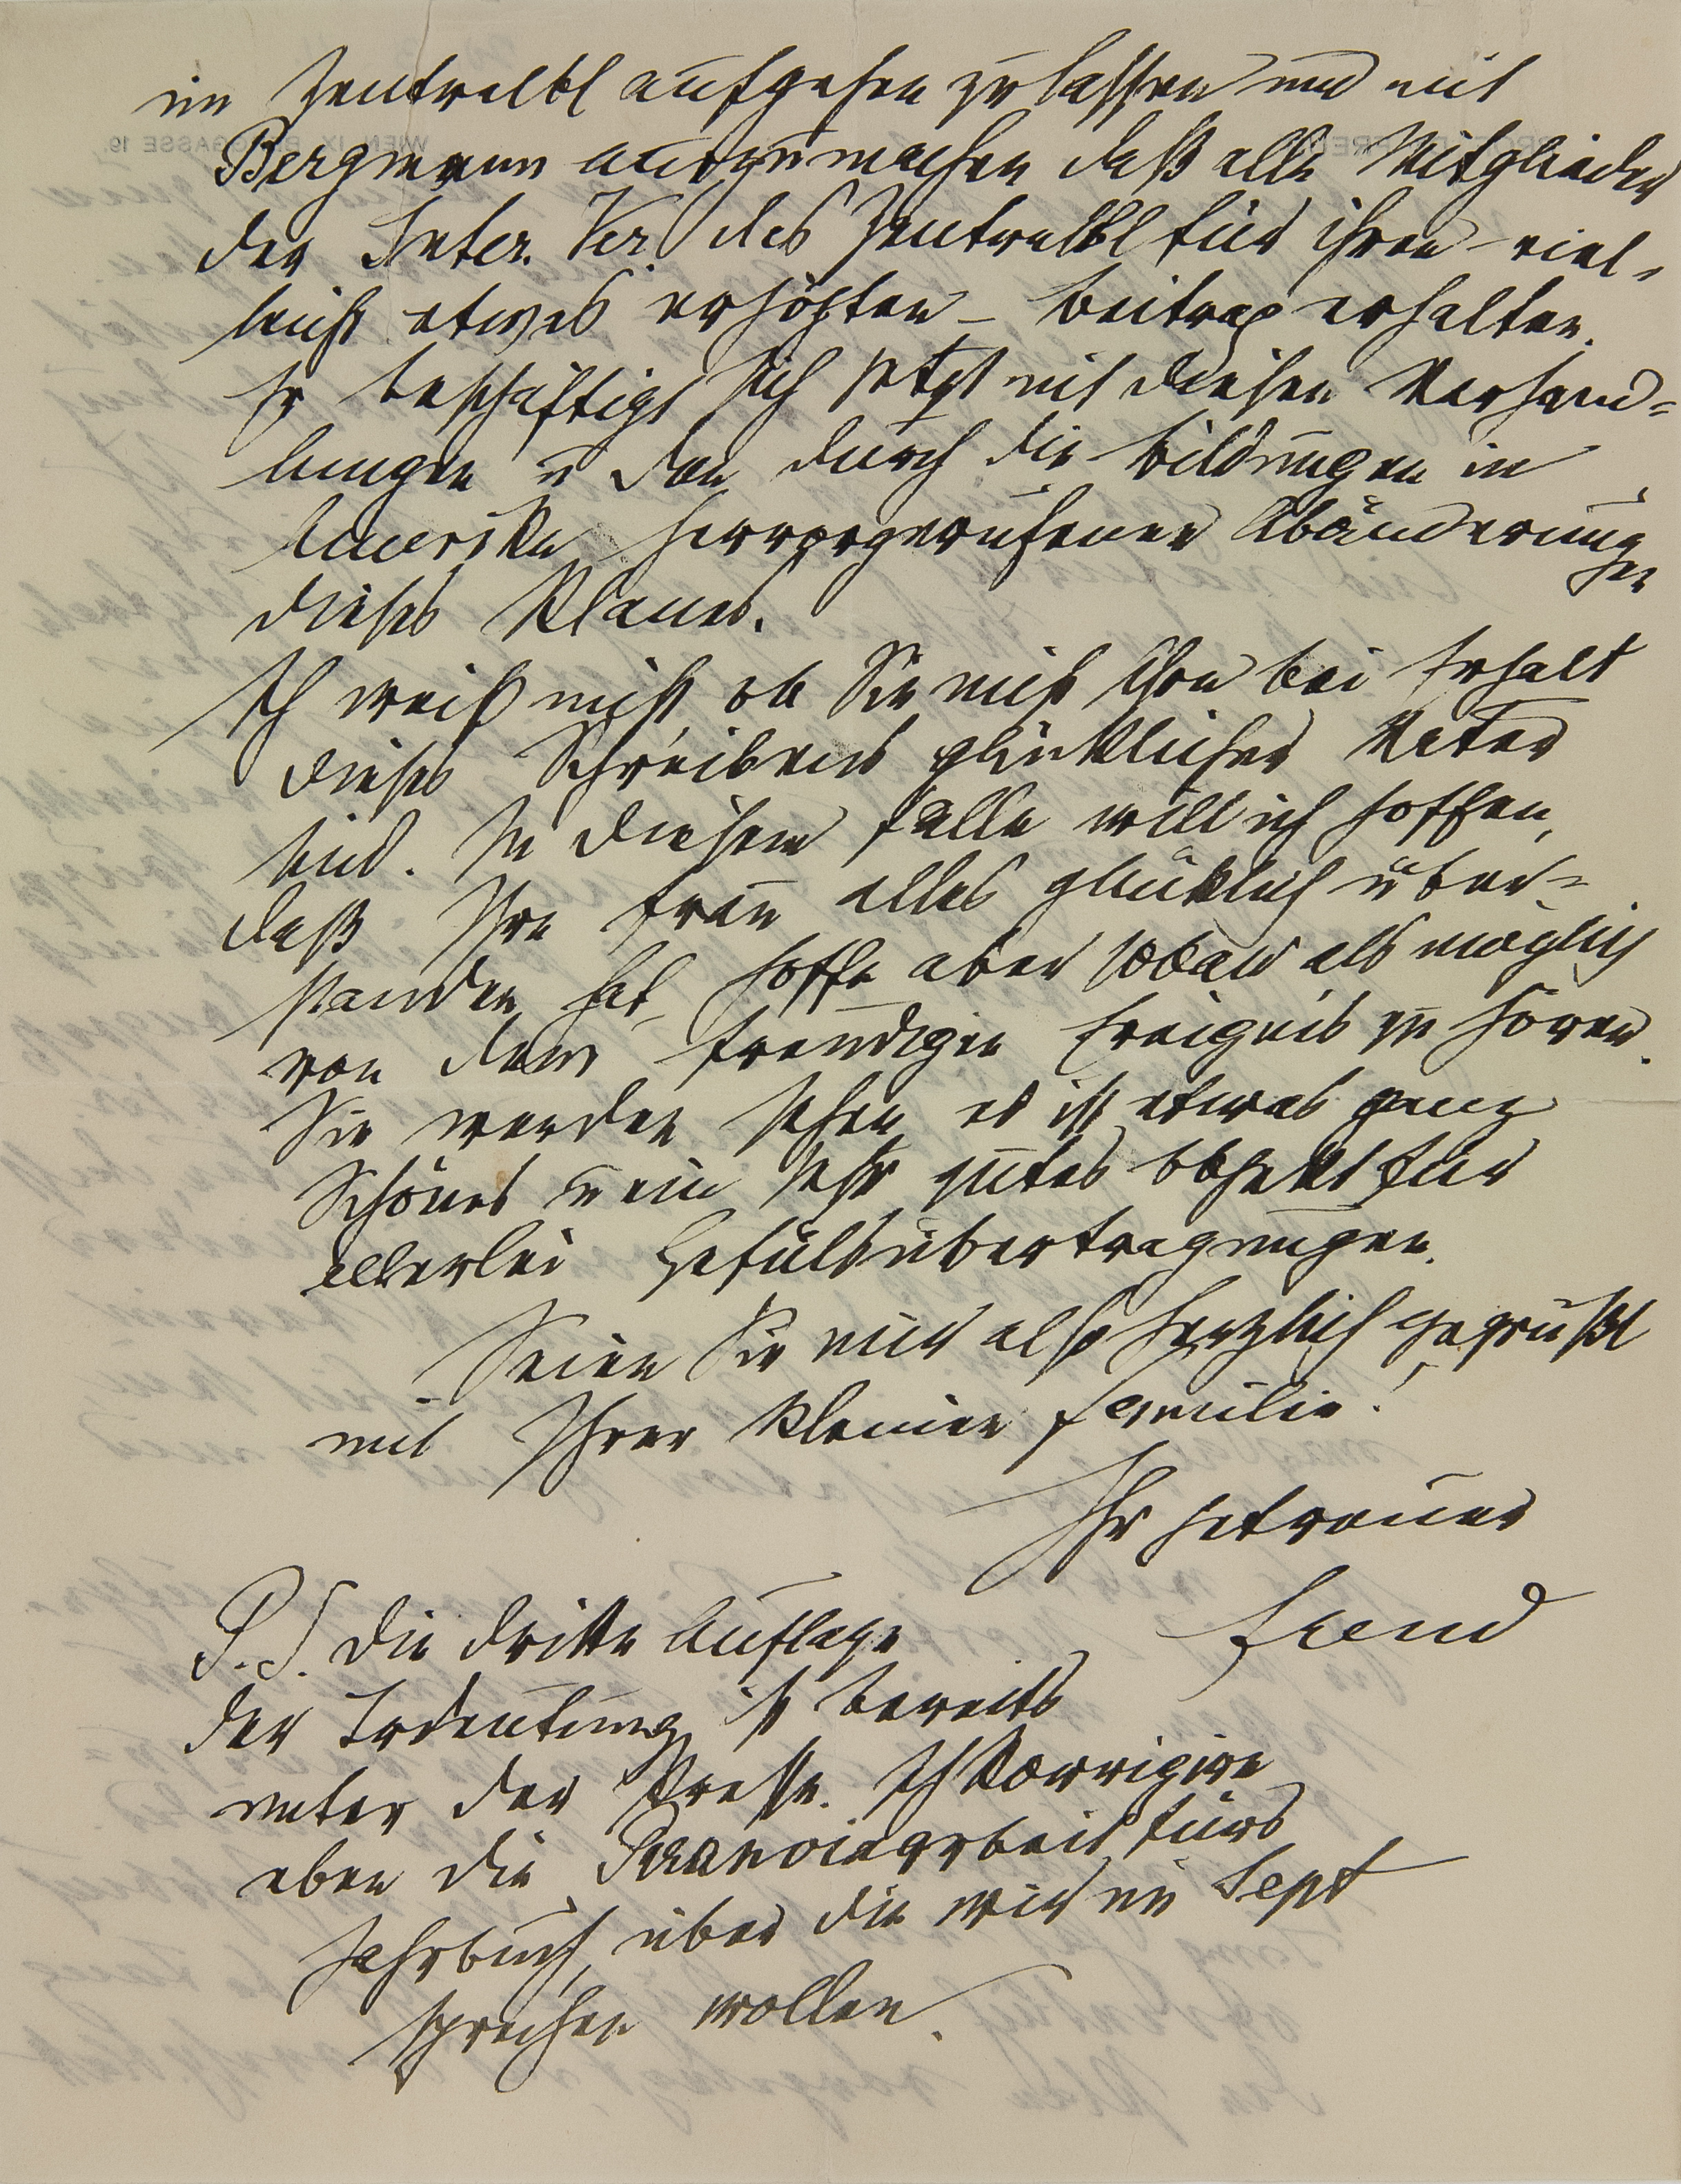 im Zentralbl aufgehen zu lassen und mit
Bergmann auszumachen daß alle Mitglieder
der Inter. Ver. das Zentralbl für ihren – viel-
leicht etwas erhöhten – Beitrag erhalten.
Er beschäftigt sich jetzt mit diesen Verhand=
lungen u den durch die Bildungen in
Amerika hervorgerufenen Abänderungen
dieses Planes.
Ich weiß nicht ob Sie nicht schon bei Erhalt
dieses Schreibens glücklicher Vater
sind. In diesem Falle will ich hoffen,
daß Ihre Frau alles glücklich über=
standen hat, hoffe aber sobald als möglich
von dem freudigen Ereignis zu hören.
Sie werden sehen es ist etwas ganz
Schönes u ein sehr gutes Objekt für
allerlei Gefülsübertragungen.
Seien Sie mir also herzlich gegrüßt
mit Ihrer kleinen Familie!
Ihr getreuer
Freud
P.S. Die dritte Auflage
der Trdeutung ist bereits
unter der Presse. Ich korrigire
eben die Paranoiaarbeit fürs
Jahrbuch, über die wir im Sept
sprechen wollen.
WIEN, IX. BERGGASSE 19.